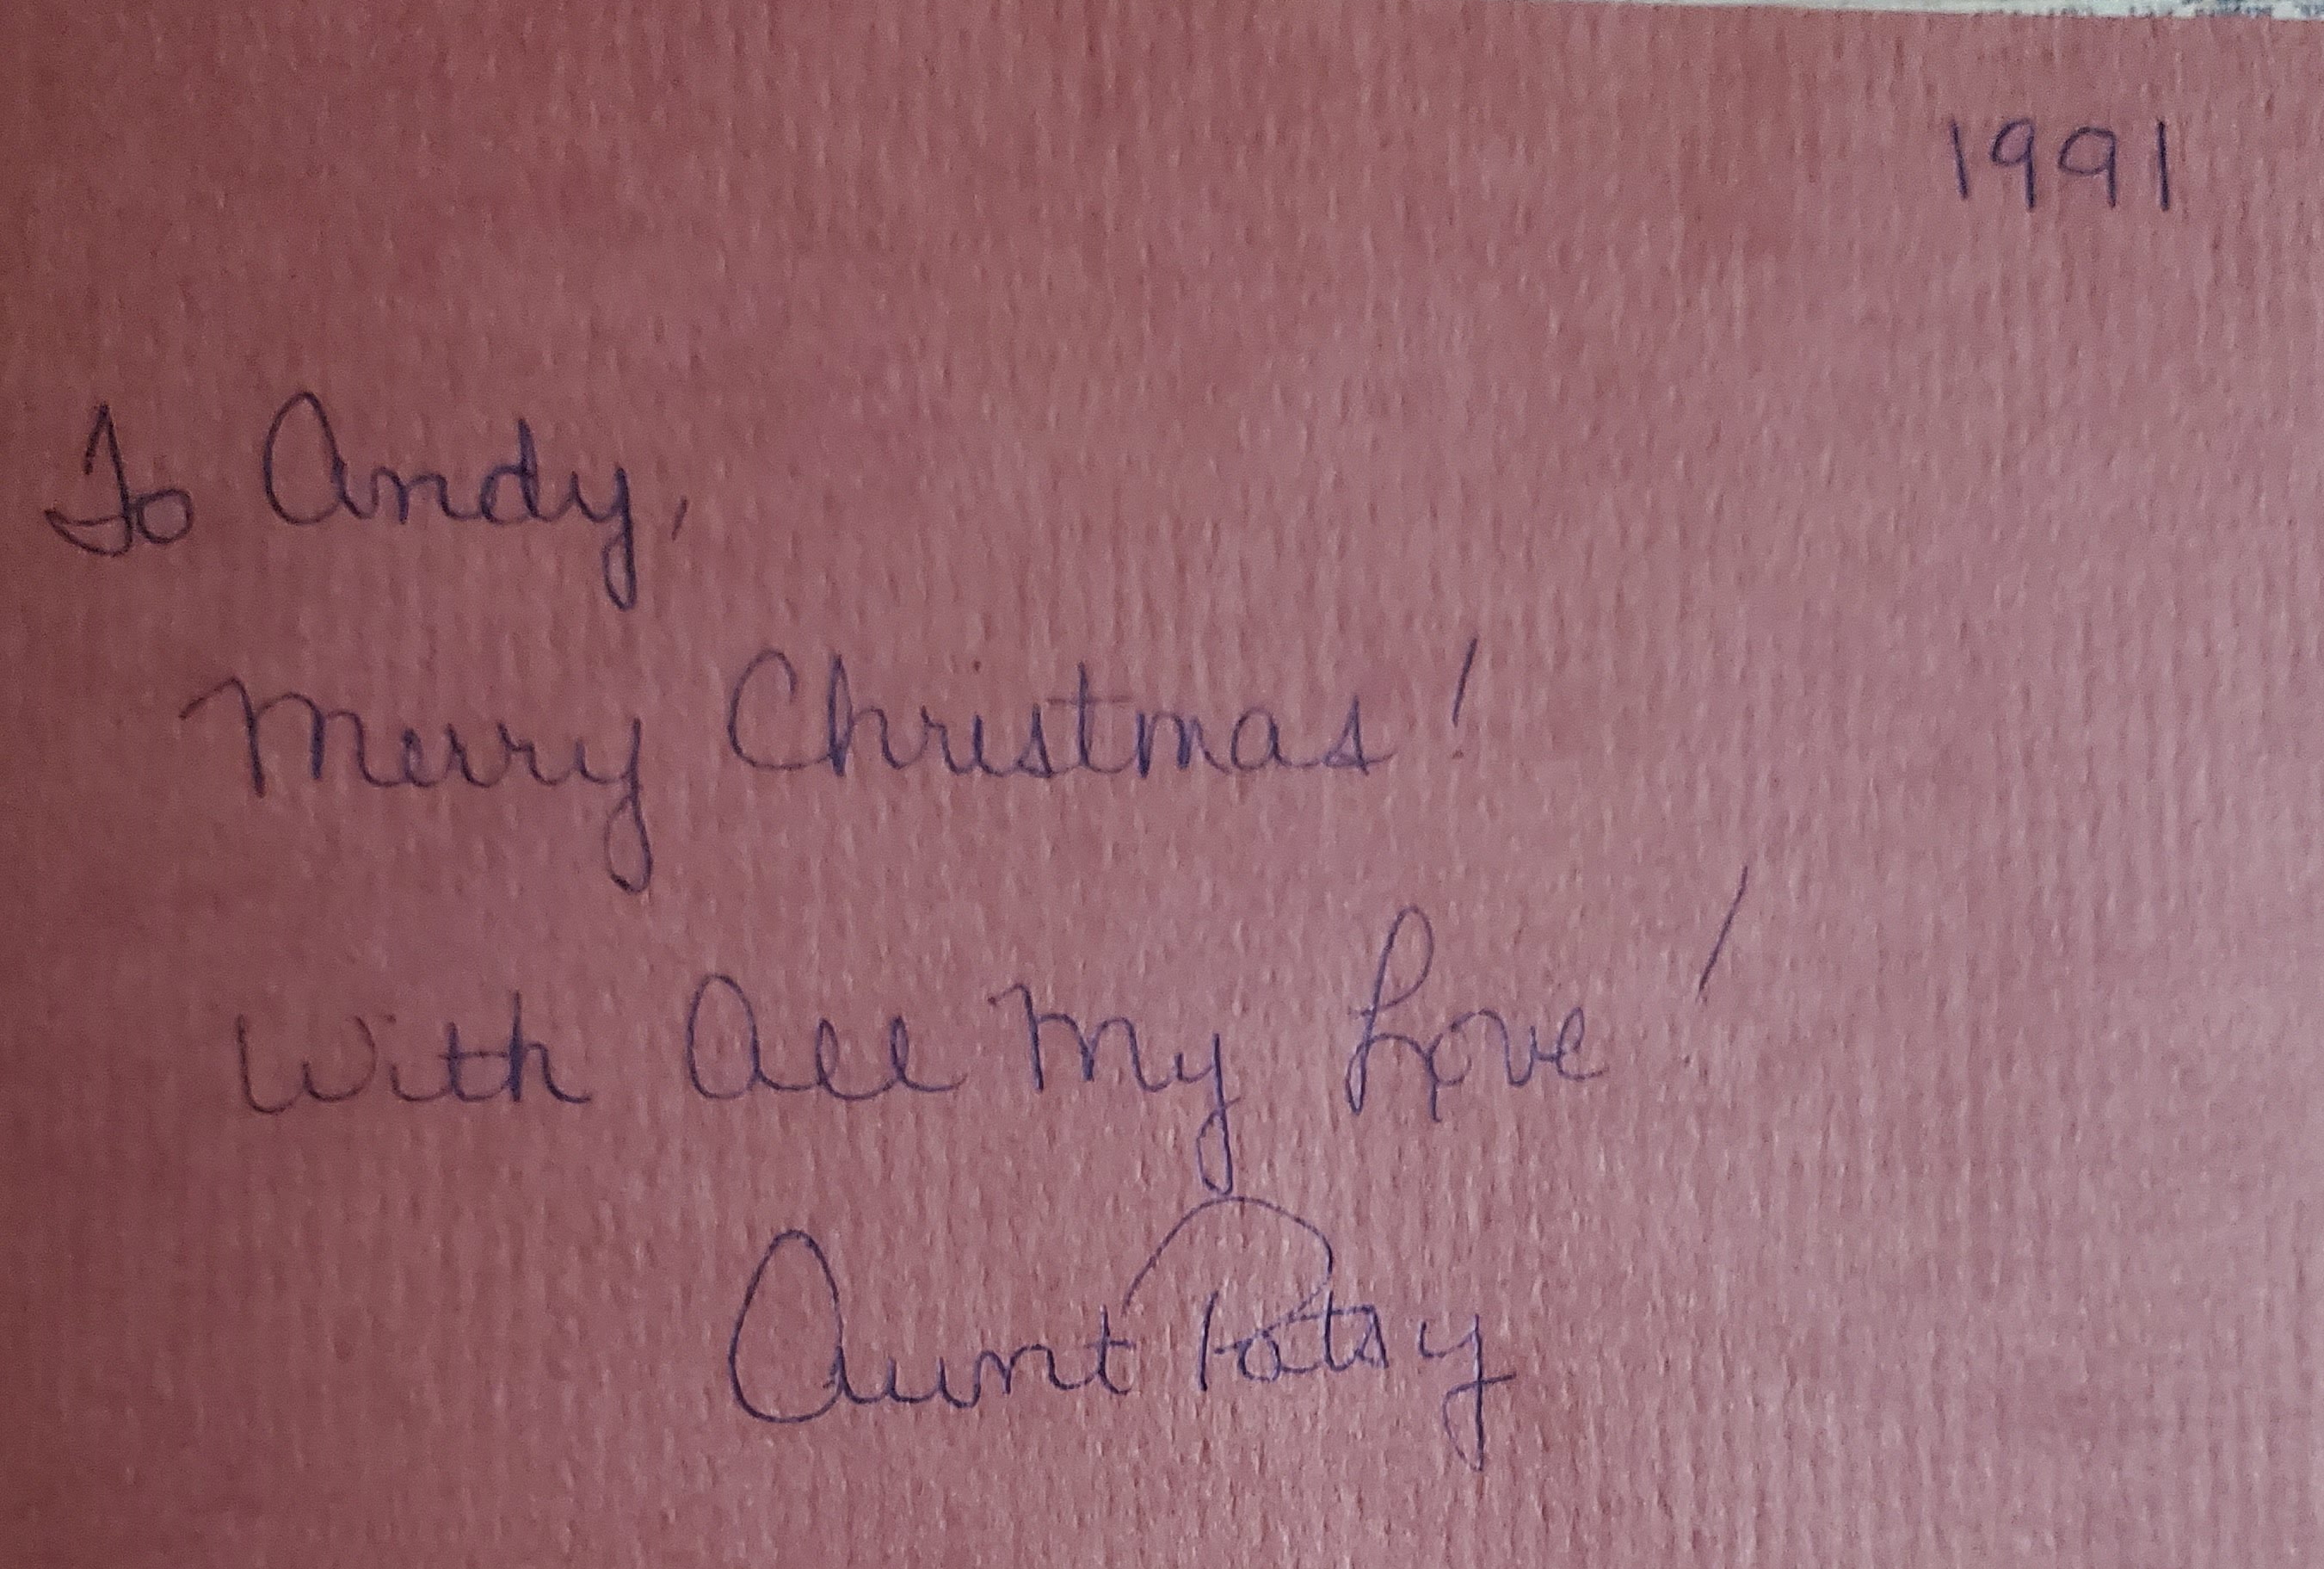 1991
To Andy,
Merry Christmas!
With All My Love!
Aunt Patsy